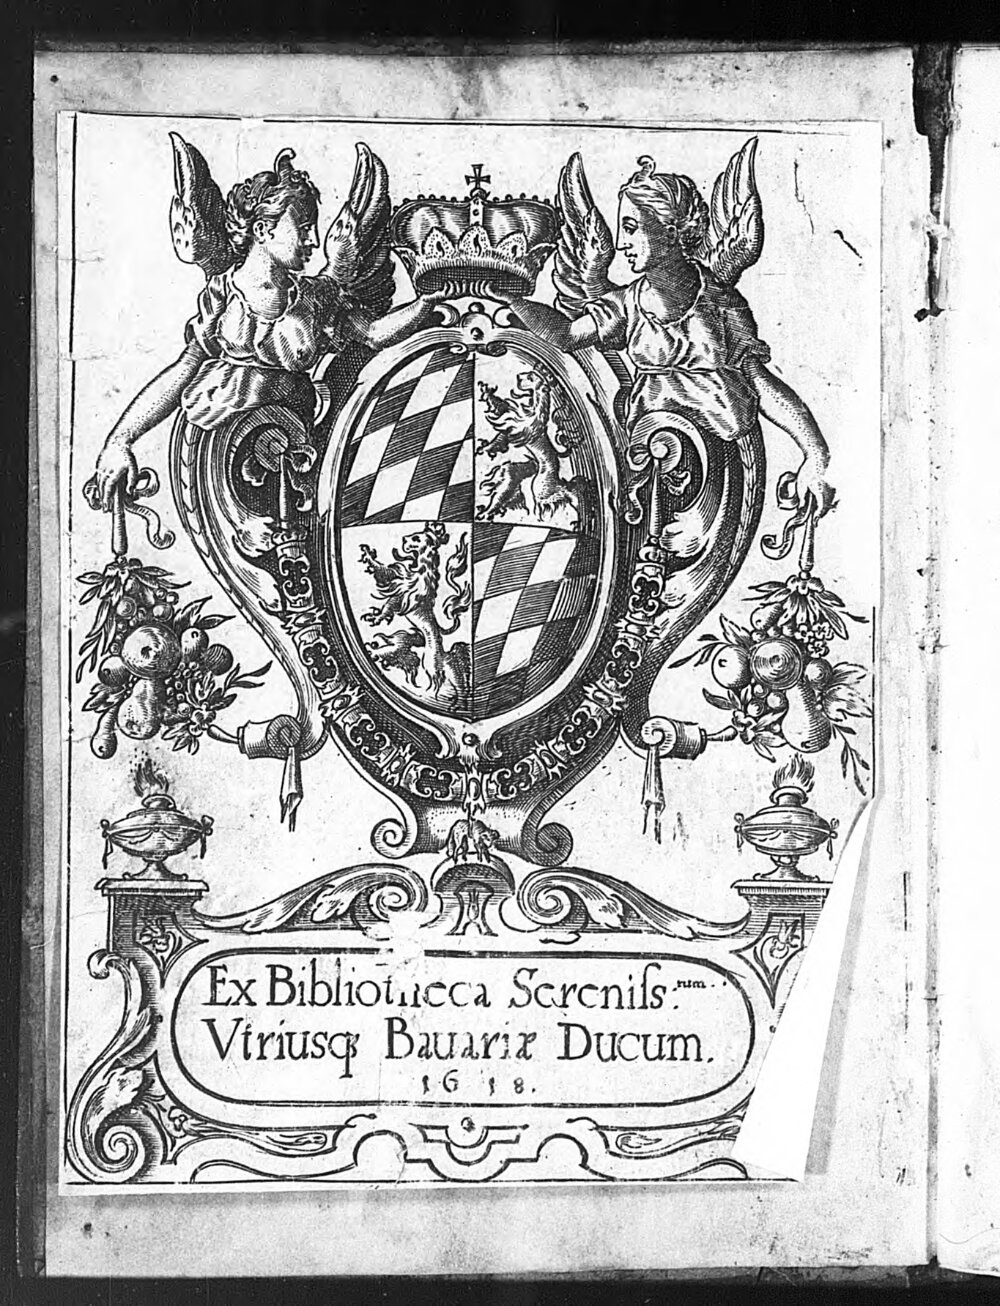 Ex Bibliotheca Sereniſs:rum.
Vtriusqꝫ Bauariæ Ducum.
1618.